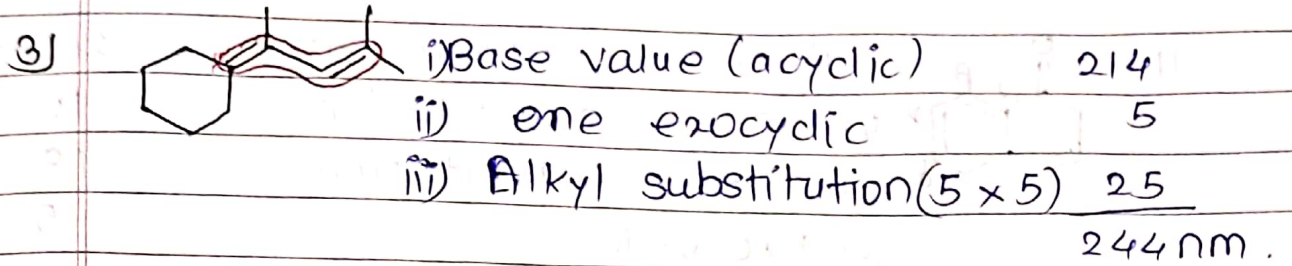 3) i) Base value (acyclic) 214
ii) one exocyclic 5
iii) Alkyl substitution (5 x 5) 25
244 nm.